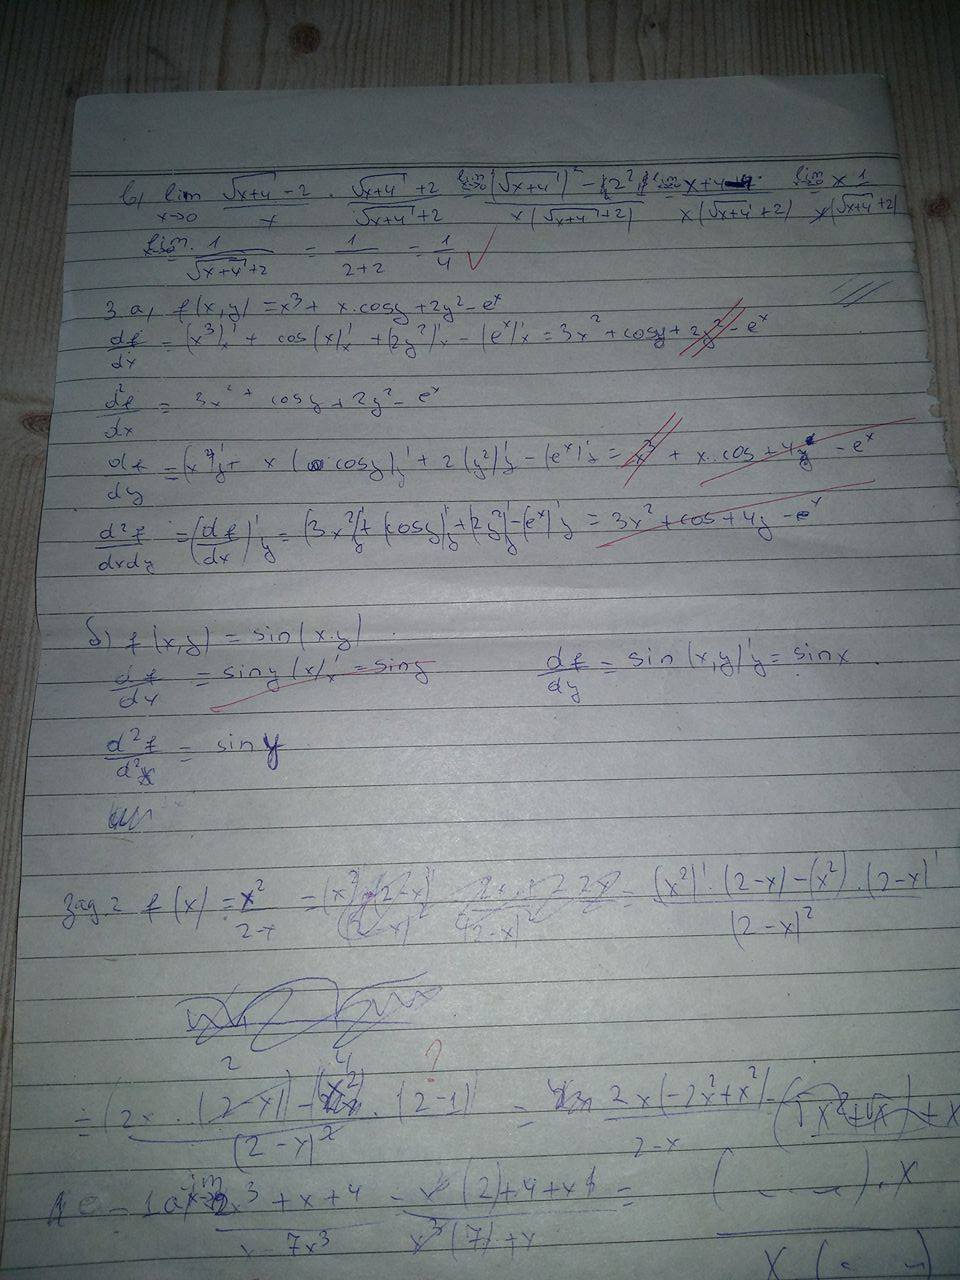 в) lim x→0 (√(x+4) - 2)/x · (√(x+4) + 2)/(√(x+4) + 2) = lim x→0 ((√(x+4))² - (2)²)/(x(√(x+4) + 2)) = lim (x+4-4)/(x(√(x+4) + 2)) = lim x→0 (x 1)/(x(√(x+4) + 2))
lim 1/(√(x+4) + 2) = 1/(2+2) = 1/4 ✓
3 а) f(x,y) = x³ + x.cosy + 2y² - eˣ
df/dx = (x³)'x + cos(x)'x + (2y²)'x - (eˣ)'x = 3x² + cosy + 2y² - eˣ
d²f/dx = 3x² + cosy + 2y² - eˣ
df/dy = (x³)'y + x(cosy)'y + 2(y²)'y - (eˣ)'y = x³ + x.cos + 4y - eˣ
d²f/dxdy = (df/dx)'y = (3x²)'y + (cosy)'y + (2y²)'y - (eˣ)'y = 3x² + cos + 4y - eˣ
б) f(x,y) = sin(x.y)
df/dx = siny(x)'x = siny df/dy = sin(x,y)'y = sinx
d²f/d²x = siny
Зад. 2 f(x) = x²/(2-x) = ((x²)'.(2-x) - (x²).(2-x)')/(2-x)²
2 4 ?
= (2x.(2-x) - (x²).(2-1))/(2-x)² = 2x(-2x²+x²)/(2-x)